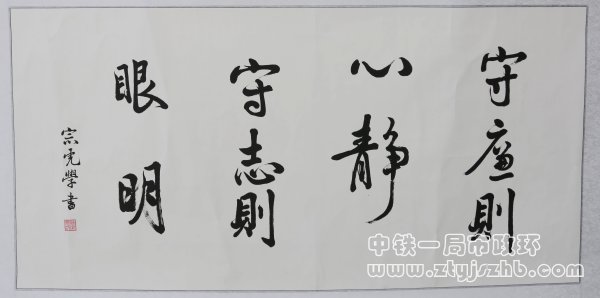 守廉則
心靜
守志則
眼明
宗虎學書
中铁一局市政环
www.ztyjszhb.com